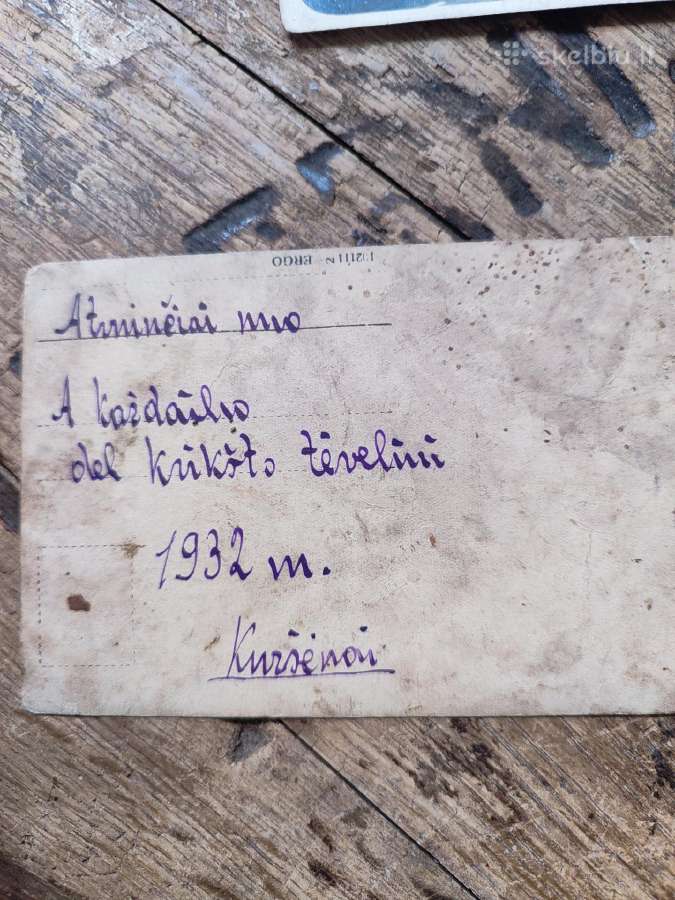 skelbiu.lt
ERGO
Atminčiai nuo
A každailio
del krikšto tėvelini
1932 m.
Kuršėnai